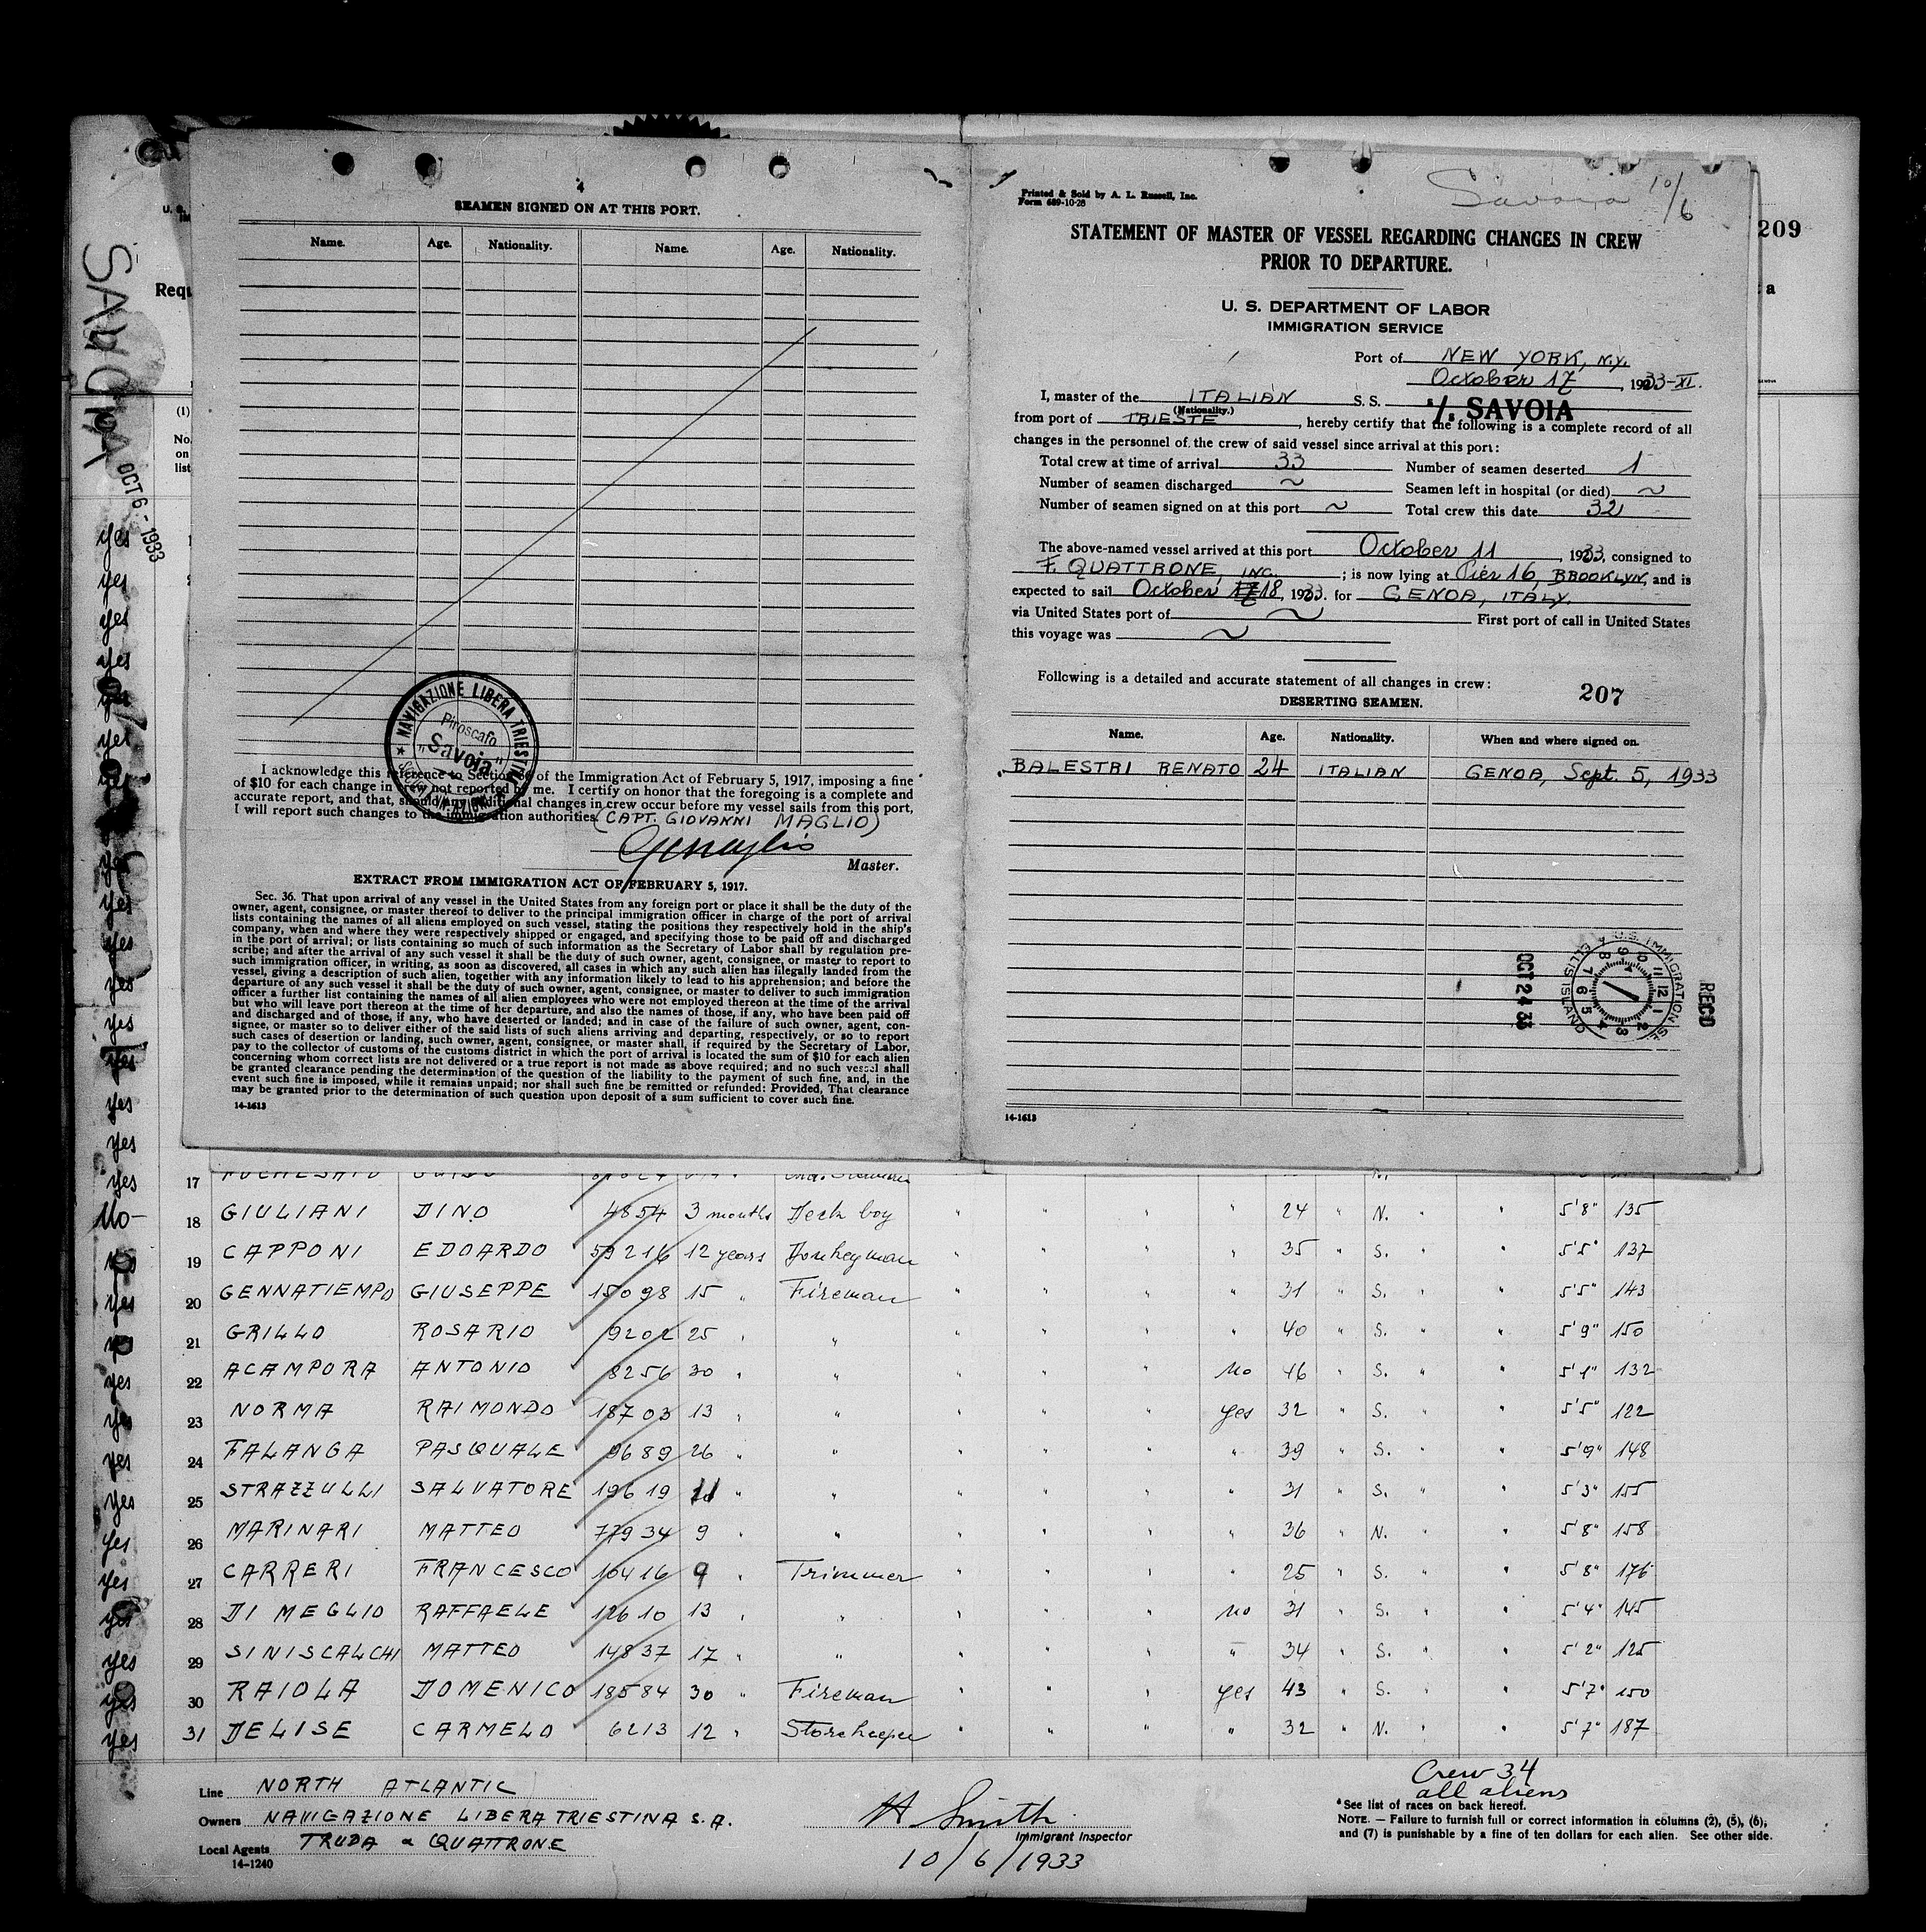 SAVOIA
OCT 6 - 1933
209
Requ
(1)
No.
on
list
4
SEAMEN SIGNED ON AT THIS PORT.
Name. Age. Nationality. Name. Age. Nationality.
NAVIGAZIONE LIBERA TRIESTINA
Piroscafo
"Savoia"
I acknowledge this reference to Section 36 of the Immigration Act of February 5, 1917, imposing a fine
of $10 for each change in crew not reported by me. I certify on honor that the foregoing is a complete and
accurate report, and that, should any additional changes in crew occur before my vessel sails from this port,
I will report such changes to the immigration authorities. (CAPT. GIOVANNI MAGLIO)
Master.
EXTRACT FROM IMMIGRATION ACT OF FEBRUARY 5, 1917.
Sec. 36. That upon arrival of any vessel in the United States from any foreign port or place it shall be the duty of the
owner, agent, consignee, or master thereof to deliver to the principal immigration officer in charge of the port of arrival
lists containing the names of all aliens employed on such vessel, stating the positions they respectively hold in the ship's
company, when and where they were respectively shipped or engaged, and specifying those to be paid off and discharged
in the port of arrival; or lists containing so much of such information as the Secretary of Labor shall by regulation pre-
scribe; and after the arrival of any such vessel it shall be the duty of such owner, agent, consignee, or master to report to
such immigration officer, in writing, as soon as discovered, all cases in which any such alien has illegally landed from the
vessel, giving a description of such alien, together with any information likely to lead to his apprehension; and before the
departure of any such vessel it shall be the duty of such owner, agent, consignee, or master to deliver to such immigration
officer a further list containing the names of all alien employees who were not employed thereon at the time of the arrival
but who will leave port thereon at the time of her departure, and also the names of those, if any, who have been paid off
and discharged and of those, if any, who have deserted or landed; and in case of the failure of such owner, agent, con-
signee, or master so to deliver either of the said lists of such aliens arriving and departing, respectively, or so to report
such cases of desertion or landing, such owner, agent, consignee, or master shall, if required by the Secretary of Labor,
pay to the collector of customs of the customs district in which the port of arrival is located the sum of $10 for each alien
concerning whom correct lists are not delivered or a true report is not made as above required; and no such vessel shall
be granted clearance pending the determination of the question of the liability to the payment of such fine, and, in the
event such fine is imposed, while it remains unpaid; nor shall such fine be remitted or refunded: Provided, That clearance
may be granted prior to the determination of such question upon deposit of a sum sufficient to cover such fine.
14-1613
Printed & Sold by A. L. Russell, Inc.
Form 689-10-28
Savoia 10/6
STATEMENT OF MASTER OF VESSEL REGARDING CHANGES IN CREW
PRIOR TO DEPARTURE.
U. S. DEPARTMENT OF LABOR
IMMIGRATION SERVICE
Port of NEW YORK, N.Y.
October 17, 1933-XI.
I, master of the ITALIAN S. S. s/s. SAVOIA
(Nationality.)
from port of TRIESTE, hereby certify that the following is a complete record of all
changes in the personnel of the crew of said vessel since arrival at this port:
Total crew at time of arrival 33 Number of seamen deserted 1
Number of seamen discharged ~ Seamen left in hospital (or died) ~
Number of seamen signed on at this port ~ Total crew this date 32
The above-named vessel arrived at this port October 11, 1933, consigned to
F. QUATTRONE, INC. ; is now lying at Pier 16, BROOKLYN, and is
expected to sail October 17 18, 1933. for GENOA, ITALY.
via United States port of ~ First port of call in United States
this voyage was ~
Following is a detailed and accurate statement of all changes in crew:
207
DESERTING SEAMEN.
Name. Age. Nationality. When and where signed on.
BALESTRI RENATO 24 ITALIAN GENOA, Sept. 5, 1933
REC'D
U. S. IMMIGRATION SE
ELLIS ISLAND
OCT 24 33
14-1613
yes 17
No 18 GIULIANI DINO 4854 3 months Deck boy " " " " 24 " N. " " 5'8" 135
19 CAPPONI EDOARDO 59216 12 years Donkeyman " " " " 35 " S. " " 5'5" 137
yes 20 GENNATIEMPO GIUSEPPE 15098 15 " Fireman " " " " 31 " S. " " 5'5" 143
21 GRILLO ROSARIO 9202 25 " " " " " " 40 " S. " " 5'9" 150
yes 22 ACAMPORA ANTONIO 8256 30 " " " " " no 46 " S. " " 5'1" 132
yes 23 NORMA RAIMONDO 18703 13 " " " " " yes 32 " S. " " 5'5" 122
yes 24 FALANGA PASQUALE 9689 26 " " " " " " 39 " S. " " 5'9" 148
yes 25 STRAZZULLI SALVATORE 19619 11 " " " " " " 31 " S. " " 5'3" 155
yes 26 MARINARI MATTEO 77934 9 " " " " " " 36 " N. " " 5'8" 158
yes 27 CARRERI FRANCESCO 10416 9 " Trimmer " " " " 25 " S. " " 5'8" 176
yes 28 DI MEGLIO RAFFAELE 12610 13 " " " " " no 31 " S. " " 5'4" 145
yes 29 SINISCALCHI MATTEO 14837 17 " " " " " " 34 " S. " " 5'2" 125
yes 30 RAIOLA DOMENICO 18584 30 " Fireman " " " yes 43 " S. " " 5'7" 150
yes 31 DELISE CARMELO 6213 12 " Storekeeper " " " " 32 " N. " " 5'7" 187
Line NORTH ATLANTIC
Owners NAVIGAZIONE LIBERA TRIESTINA S.A.
Local Agents TRUDA & QUATTRONE
14-1240
H Smith
Immigrant Inspector
10/6/1933
Crew 34
all aliens
*See list of races on back hereof.
NOTE. — Failure to furnish full or correct information in columns (2), (5), (6),
and (7) is punishable by a fine of ten dollars for each alien. See other side.